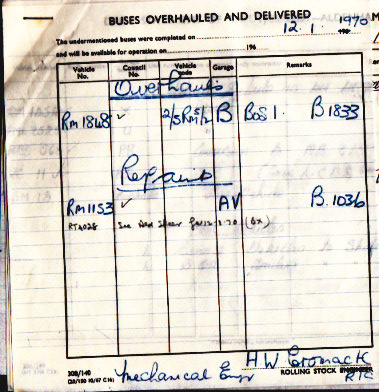 BUSES OVERHAULED AND DELIVERED
12.1. 1970
The undermentioned buses were completed on
and will be available for operation on 196
Vehicle No. Council No. Vehicle code Garage Remarks
Overhauls
RM 1848 ✓ 2/5 RM5/2 B BOS 1. B 1833
Repairs
RM 1153 ✓ AV B. 1036
RT4028 See New Sheet 12-1-70 (6x)
Mechanical Engr H W Cromack
20B/140 ROLLING STOCK ENGINEER
RTC